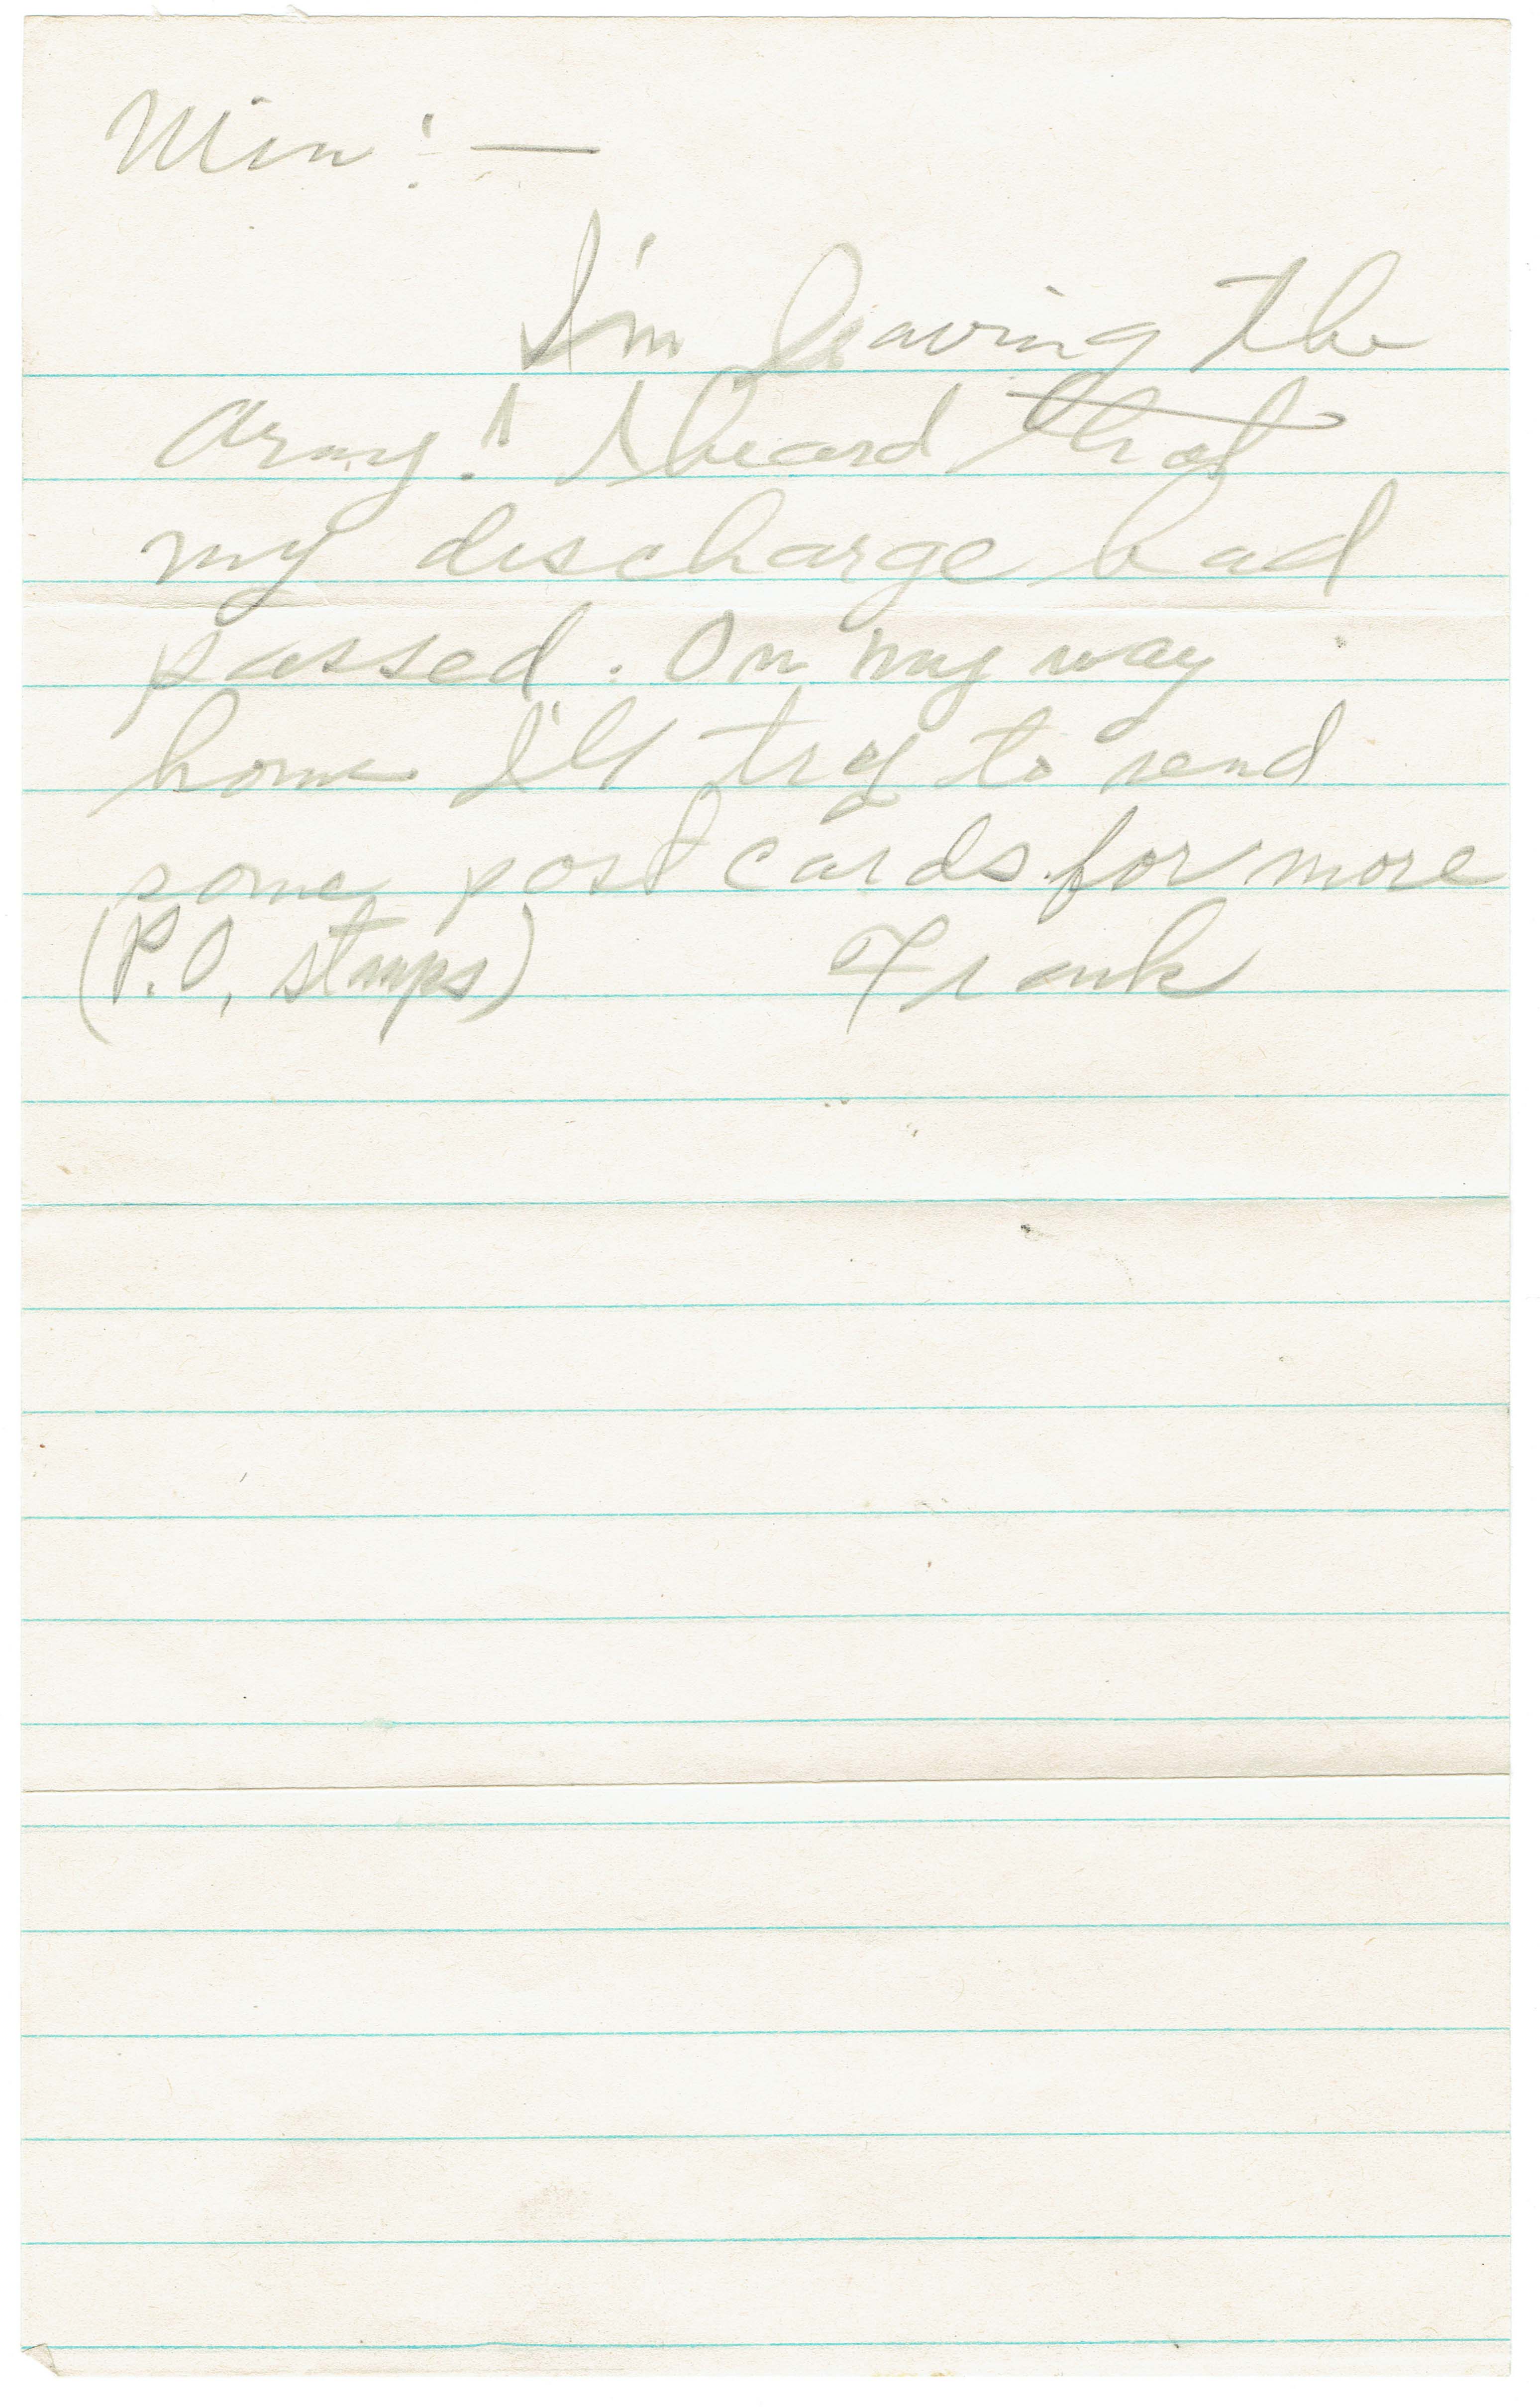 Min:—
I'm leaving the
Army! I heard that
my discharge had
passed. On my way
home I'll try to send
some post cards for more
(P.O, stamps) Frank